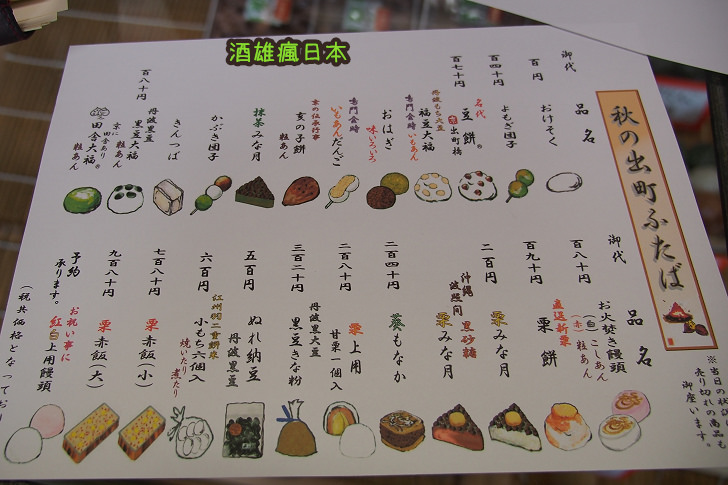 酒雄瘋日本
秋の出町ふたば
御代
品名
百円
おけそく
百四十円
よもぎ団子
百七十円
名代
豆餅
出町橋
丹波もち大豆
福豆大福
鳴門金時
いもあん
おはぎ
味いろいろ
鳴門金時
いもあんだんご
京の伝承行事
亥の子餅
粒あん
抹茶みな月
かぶき団子
きんつば
百八十円
丹波黒豆
黒豆大福
粒あん
京に田舎あり
田舎大福
粒あん
御代
品名
百八十円
お火焚き饅頭
(白)こしあん
(赤)粒あん
百九十円
直送新栗
栗餅
二百円
栗みな月
沖縄
波照間
黒砂糖
栗みな月
二百四十円
葵もなか
二百八十円
栗上用
甘栗一個入
三百二十円
丹波黒大豆
黒豆きな粉
五百円
ぬれ納豆
丹波黒豆
六百円
紅州羽二重餅米
小もち六個入
焼いたり煮たり
七百八十円
栗赤飯(小)
九百八十円
栗赤飯(大)
予約
承ります。
お祝い事に
紅白上用饅頭
(税共価格となってお
※当日の状
売り切れの商品も
御座います。